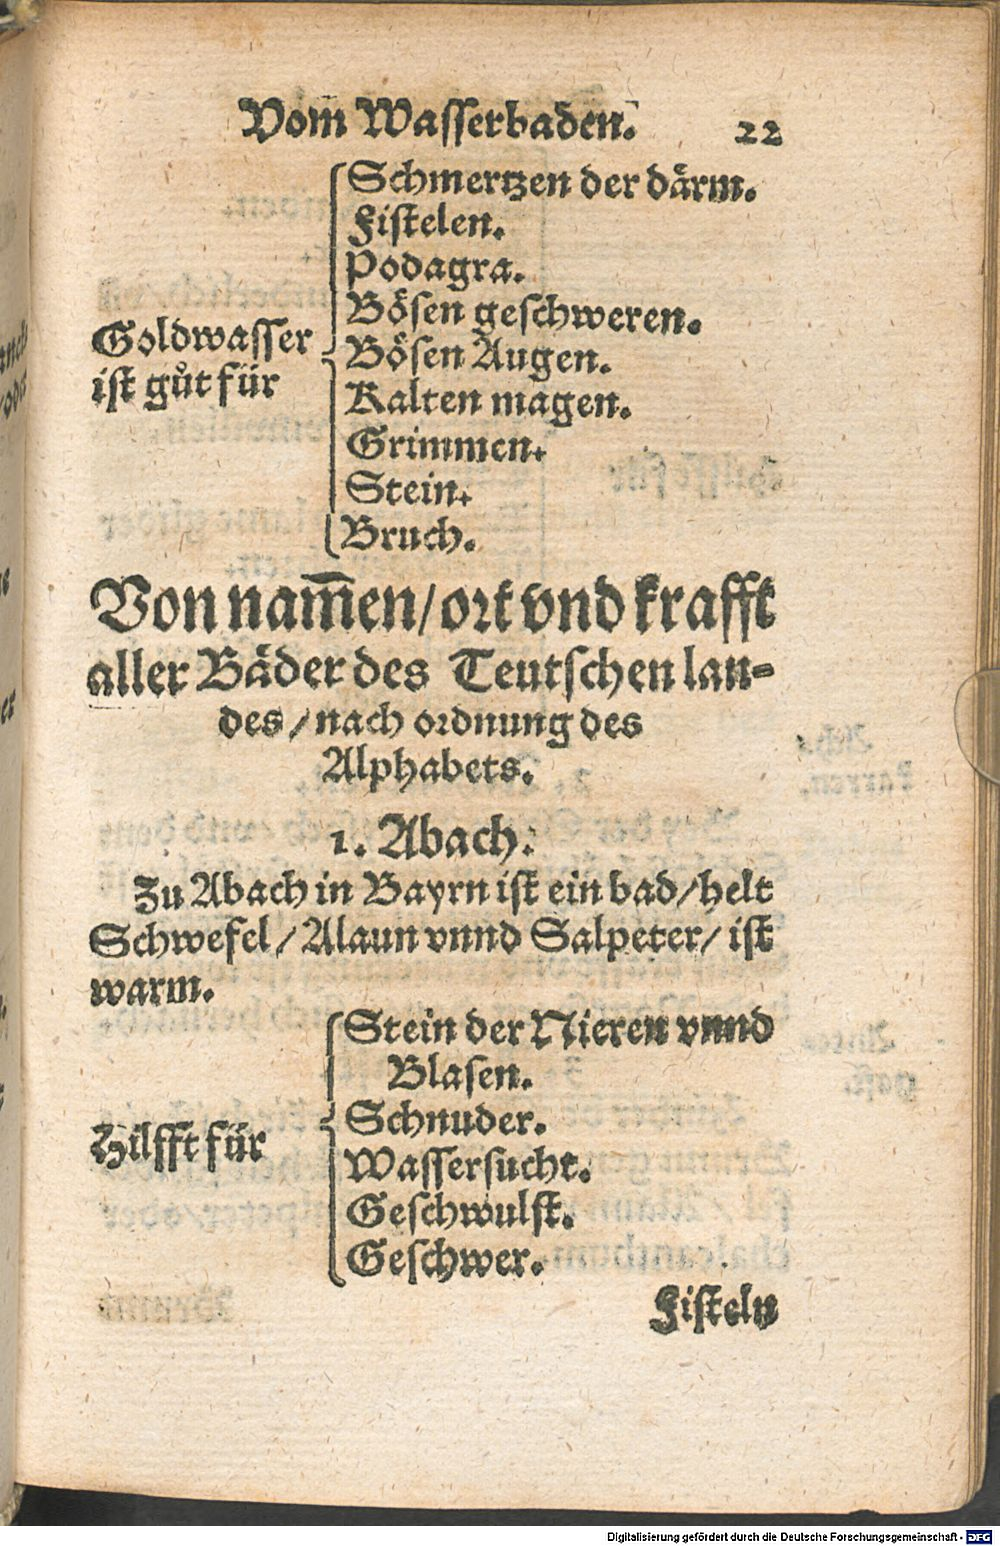 Vom Wasserbaden. 22
Schmertzen der daͤrm.
Fistelen.
Podagra.
Boͤsen geschweren.
Goldwasser
ist guͦt für
Boͤsen Augen.
Kalten magen.
Grimmen.
Stein.
Bruch.
Von nam̅en/ort vnd krafft
aller Baͤder des Teutschen lan-
des/nach ordnung des
Alphabets.
1. Abach.
Zu Abach in Bayrn ist ein bad/helt
Schwefel/Alaun vnnd Salpeter/ist
warm.
Stein der Nieren vnnd
Blasen.
Hilfft für
Schnuder.
Wassersucht.
Geschwulst.
Geschwer.
Fisteln
Digitalisierung gefördert durch die Deutsche Forschungsgemeinschaft - DFG